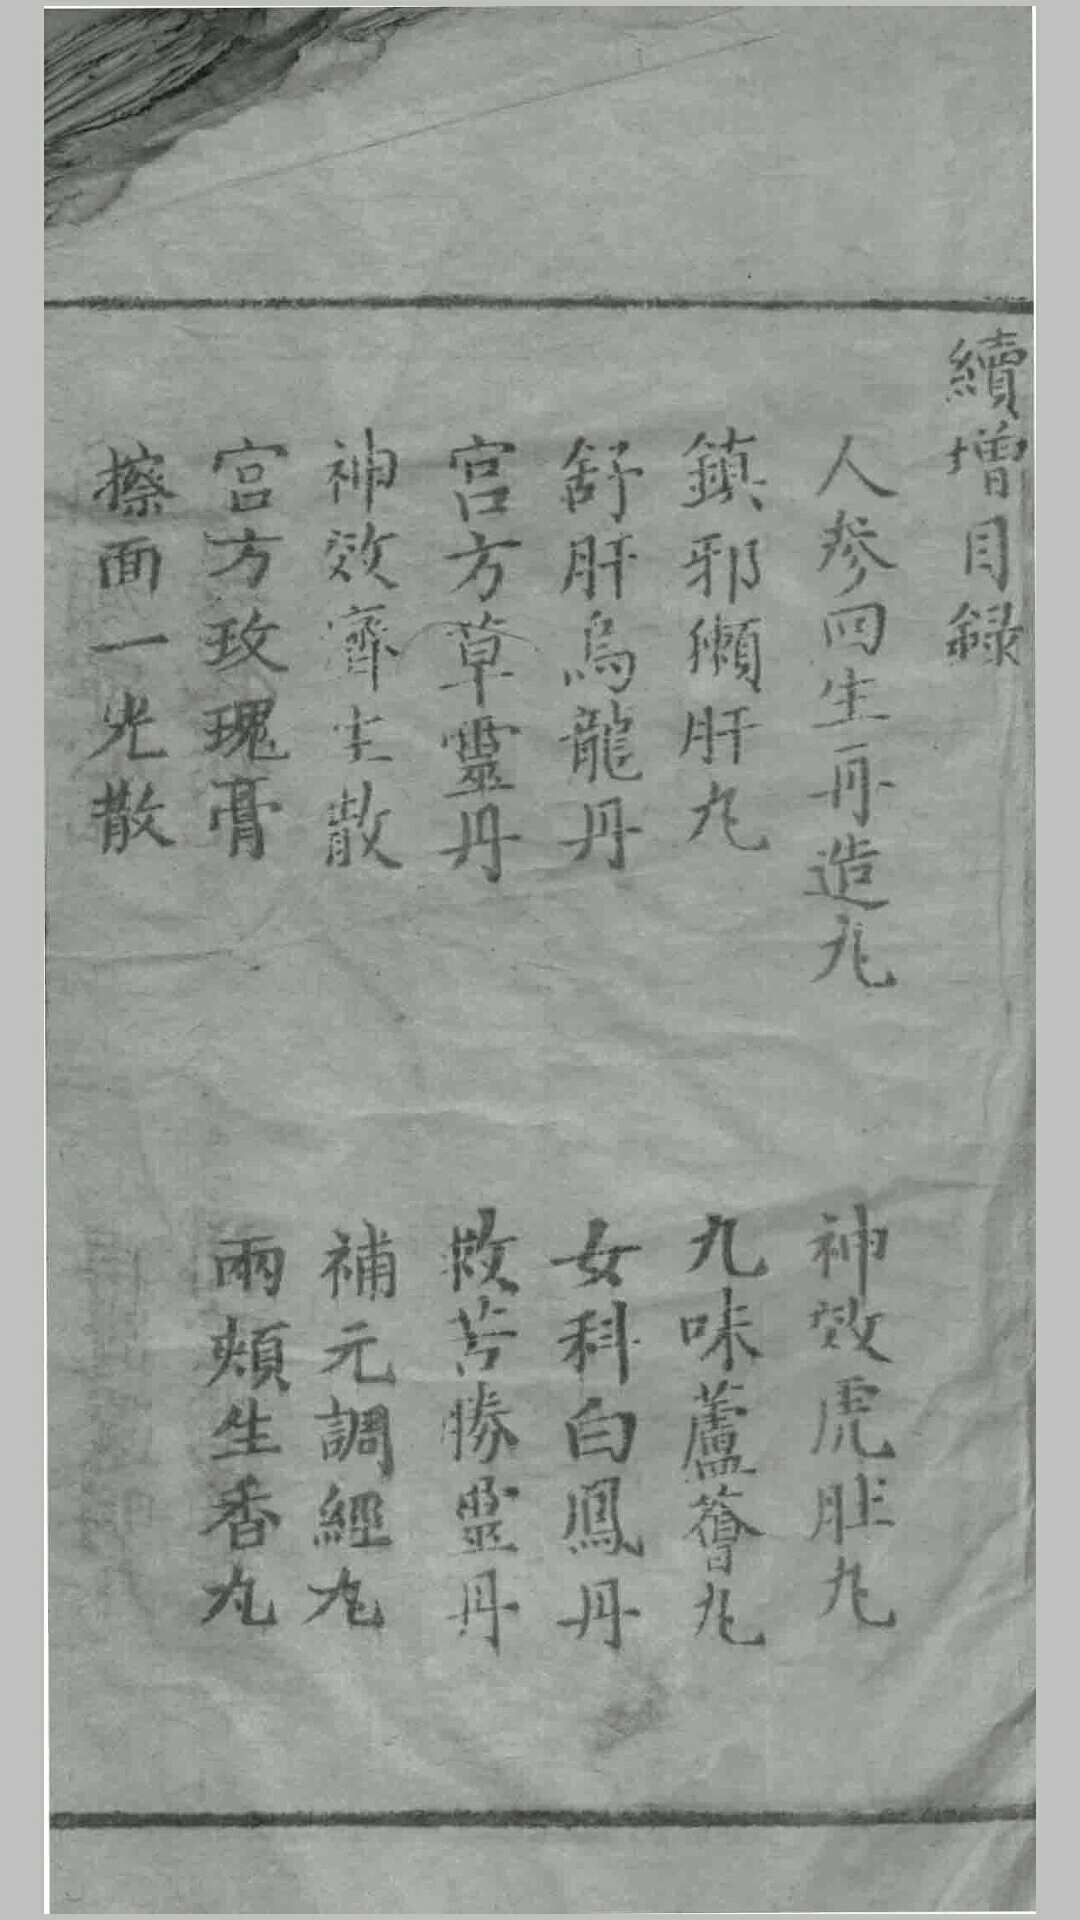 續增目錄
人參回生再造丸
神效虎肚丸
鎮邪獺肝丸
九味蘆薈丸
舒肝烏龍丹
女科白鳳丹
宮方草靈丹
救苦勝靈丹
神效濟生散
補元調經丸
宮方玫瑰膏
兩頰生香丸
擦面一光散